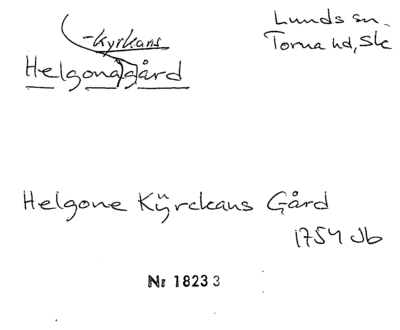 -kyrkans
Helgonagård
Lunds sn.
Torna hd, Sk
Helgone Kÿrckans Gård
1754 Jb
Nr 18233